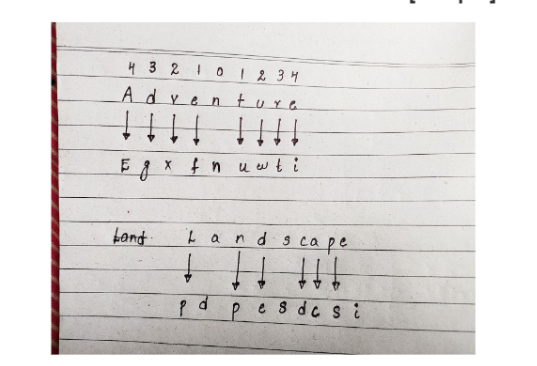 4 3 2 1 0 1 2 3 4
A d v e n t u r e
E g x f n u w t i
Land L a n d s c a p e
p d p e s d c s i